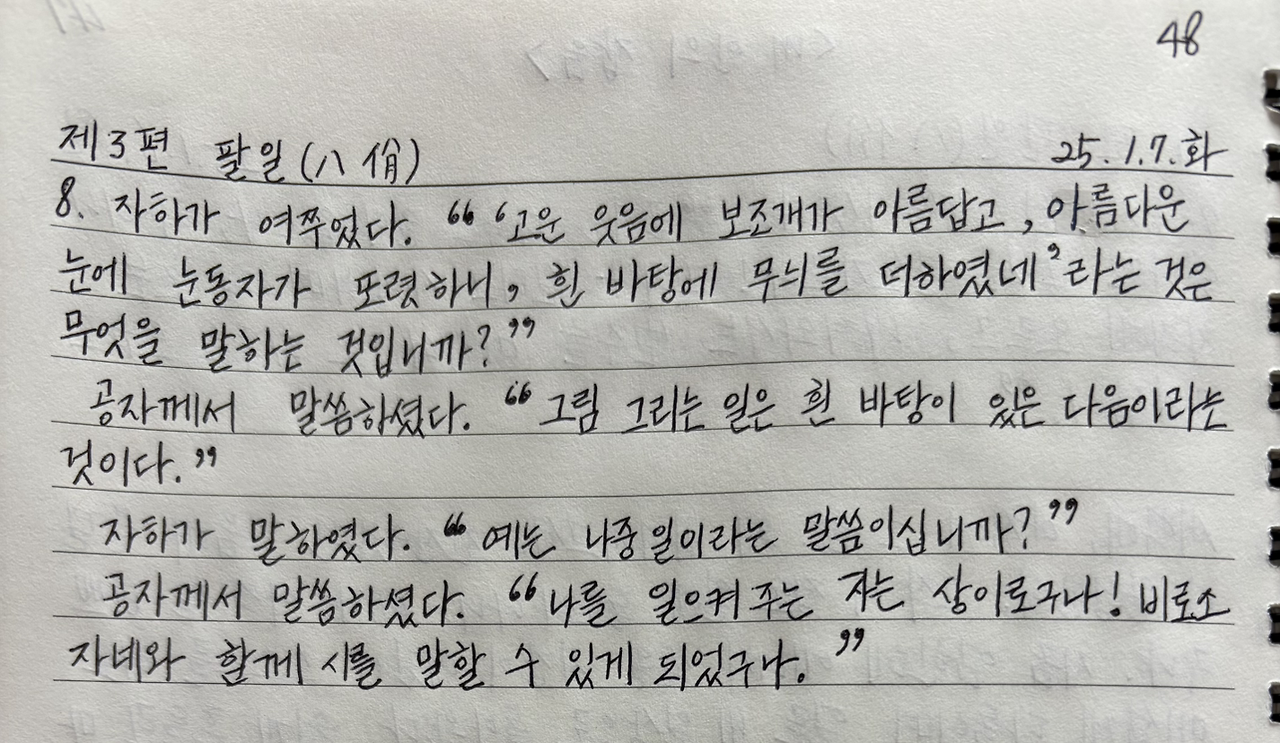 48
제3편 팔일(八佾) 25.1.7.화
8. 자하가 여쭈었다. “ ‘고운 웃음에 보조개가 아름답고, 아름다운
눈에 눈동자가 또렷하니, 흰 바탕에 무늬를 더하였네’라는 것은
무엇을 말하는 것입니까?”
공자께서 말씀하셨다. “그림 그리는 일은 흰 바탕이 있은 다음이라는
것이다.”
자하가 말하였다. “예는 나중 일이라는 말씀이십니까?”
공자께서 말씀하셨다. “나를 일으켜 주는 자는 상이로구나! 비로소
자네와 함께 시를 말할 수 있게 되었구나.”